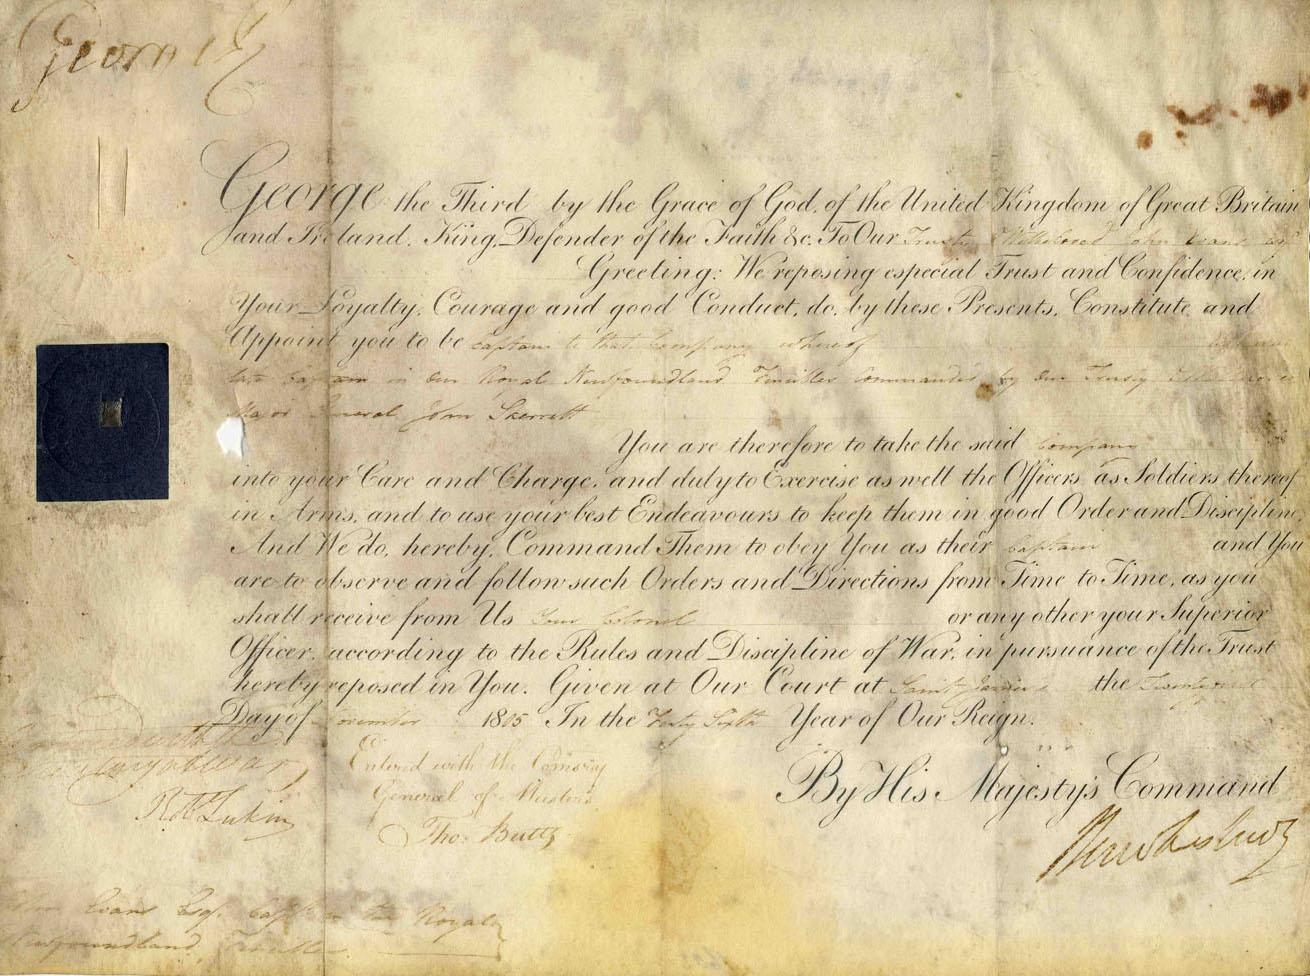 George R
George the Third by the Grace of God, of the United Kingdom of Great Britain
and Ireland, King, Defender of the Faith &c. To Our Trusty & Wellbeloved John Evans Esqr.
Greeting: We reposing especial Trust and Confidence, in
Your Loyalty, Courage and good Conduct, do, by these Presents, Constitute and
Appoint you to be Captain to that Company whereof
late Captain in Our Royal Newfoundland Fencibles Commanded by Our Trusty
Major General John Skerrett
You are therefore to take the said Company
into your Care and Charge, and duly to Exercise as well the Officers as Soldiers thereof
in Arms, and to use your best Endeavours to keep them in good Order and Discipline,
And We do, hereby, Command Them to obey You as their Captain and You
are to observe and follow such Orders and Directions from Time to Time, as you
shall receive from Us Your Colonel or any other your Superior
Officer, according to the Rules and Discipline of War, in pursuance of the Trust
hereby reposed in You. Given at Our Court at Saint James's the
Day of November 1805 In the Forty Sixth Year of Our Reign.
By His Majesty's Command
Hawkesbury
with the
Secretary at War
Entered with the Comsry
General of Musters
Thos. Butts
John Evans Esqr. Capt. in the Royal
Newfoundland Fencibles